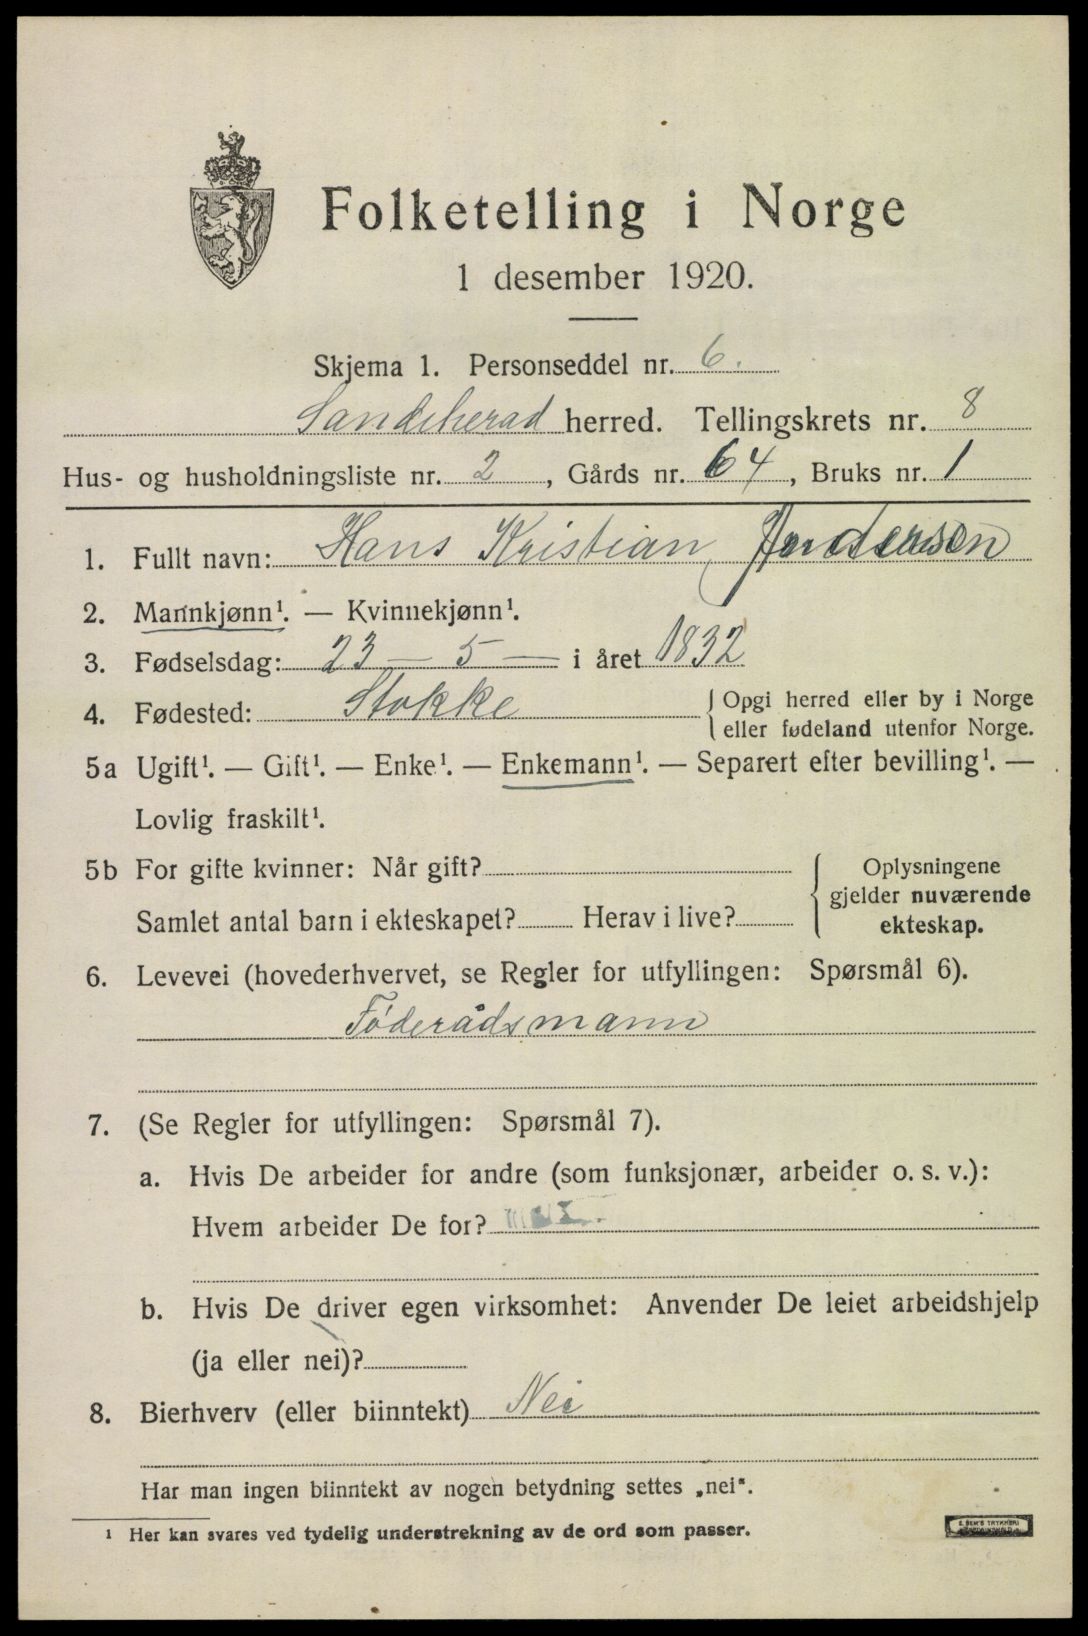 Folketelling i Norge
1 desember 1920.
Skjema 1. Personseddel nr. 6.
Sandeherad herred. Tellingskrets nr. 8
Hus- og husholdningsliste nr. 2, Gårds nr. 64, Bruks nr. 1
1. Fullt navn: Hans Kristian Andersen
2. Mannkjønn¹. — Kvinnekjønn¹.
3. Fødselsdag: 23 — 5 — i året 1832
4. Fødested: Stokke { Opgi herred eller by i Norge
eller fødeland utenfor Norge.
5a Ugift¹. — Gift¹. — Enke¹. — Enkemann¹. — Separert efter bevilling¹. —
Lovlig fraskilt¹.
5b For gifte kvinner: Når gift? { Oplysningene
gjelder nuværende
Samlet antal barn i ekteskapet? Herav i live? ekteskap.
6. Levevei (hovederhvervet, se Regler for utfyllingen: Spørsmål 6).
Föderådsmann
7. (Se Regler for utfyllingen: Spørsmål 7).
a. Hvis De arbeider for andre (som funksjonær, arbeider o. s. v.):
Hvem arbeider De for?
b. Hvis De driver egen virksomhet: Anvender De leiet arbeidshjelp
(ja eller nei)?
8. Bierhverv (eller biinntekt) Nei
Har man ingen biinntekt av nogen betydning settes „nei".
¹ Her kan svares ved tydelig understrekning av de ord som passer.